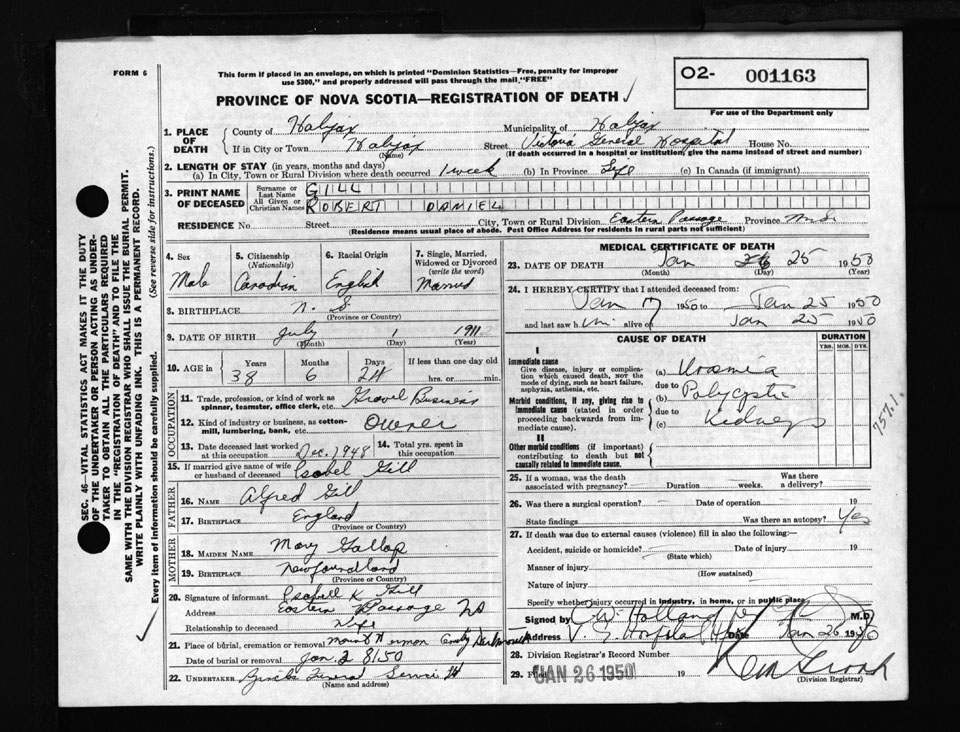 FORM 6
This form if placed in an envelope, on which is printed "Dominion Statistics—Free, penalty for improper
use $300," and properly addressed will pass through the mail "FREE"
PROVINCE OF NOVA SCOTIA—REGISTRATION OF DEATH
O2- 001163
For use of the Department only
1. PLACE OF DEATH County of Halifax Municipality of Halifax
If in City or Town Halifax (Name) Street Victoria General Hospital House No.
(If death occurred in a hospital or institution, give the name instead of street and number)
2. LENGTH OF STAY (in years, months and days)
(a) In City, Town or Rural Division where death occurred 1 week (b) In Province Life (c) In Canada (if immigrant)
3. PRINT NAME OF DECEASED Surname or Last Name GILL
All Given or Christian Names ROBERT DANIEL
RESIDENCE No. Street City, Town or Rural Division Eastern Passage Province N.S.
(Residence means usual place of abode. Post Office Address for residents in rural parts not sufficient)
4. Sex Male
5. Citizenship (Nationality) Canadian
6. Racial Origin English
7. Single, Married, Widowed or Divorced (write the word) Married
8. BIRTHPLACE N.S (Province or Country)
9. DATE OF BIRTH July 1 1911 (Month) (Day) (Year)
10. AGE in Years 38 Months 6 Days 24 If less than one day old hrs. or min.
OCCUPATION
11. Trade, profession, or kind of work as spinner, teamster, office clerk, etc. Gravel Business
12. Kind of industry or business, as cotton-mill, lumbering, bank, etc. Owner
13. Date deceased last worked at this occupation Dec. 1948
14. Total yrs. spent in this occupation
15. If married give name of wife or husband of deceased Isobel Gill
FATHER
16. NAME Alfred Gill
17. BIRTHPLACE England (Province or Country)
MOTHER
18. MAIDEN NAME Mary Gallop
19. BIRTHPLACE Newfoundland (Province or Country)
20. Signature of informant Isobell K Gill
Address Eastern Passage NS
Relationship to deceased Wife
21. Place of burial, cremation or removal Mount Hermon Cemty Dartmouth
Date of burial or removal Jan. 28/50
22. UNDERTAKER Funeral Service (Name and address)
MEDICAL CERTIFICATE OF DEATH
23. DATE OF DEATH Jan 25 1950 (Month) (Day) (Year)
24. I HEREBY CERTIFY that I attended deceased from:
Jan 7 1950 to Jan 25 1950
and last saw him alive on Jan 25 1950
CAUSE OF DEATH DURATION
YRS. MOS. DYS.
I
Immediate cause
Give disease, injury or complication which caused death, NOT the mode of dying, such as heart failure, asphyxia, asthenia, etc.
(a) Uraemia
due to
Morbid conditions, if any, giving rise to immediate cause (stated in order proceeding backwards from immediate cause).
(b) Polycystic
due to
(c) Kidneys
II
Other morbid conditions (if important) contributing to death but not causally related to immediate cause.
757.1
25. If a woman, was the death associated with pregnancy? Duration weeks. Was there a delivery?
26. Was there a surgical operation? Date of operation 19
State findings Was there an autopsy? Yes
27. If death was due to external causes (violence) fill in also the following:—
Accident, suicide or homicide? Date of injury 19
(State which)
Manner of injury
(How sustained)
Nature of injury
Specify whether injury occurred in industry, in home, or in public place
Signed by C.W. Holland M.D.
Address V. G. Hospital Hfx Date Jan 26 1950
28. Division Registrar's Record Number
29. Filed JAN 26 1950 19
(Division Registrar)
SEC. 46—VITAL STATISTICS ACT MAKES IT THE DUTY
OF THE UNDERTAKER OR PERSON ACTING AS UNDER-
TAKER TO OBTAIN ALL THE PARTICULARS REQUIRED
IN THE "REGISTRATION OF DEATH" AND TO FILE THE
SAME WITH THE DIVISION REGISTRAR WHO SHALL ISSUE THE BURIAL PERMIT.
WRITE PLAINLY WITH UNFADING INK. THIS IS A PERMANENT RECORD.
Every item of information should be carefully supplied. (See reverse side for instructions.)